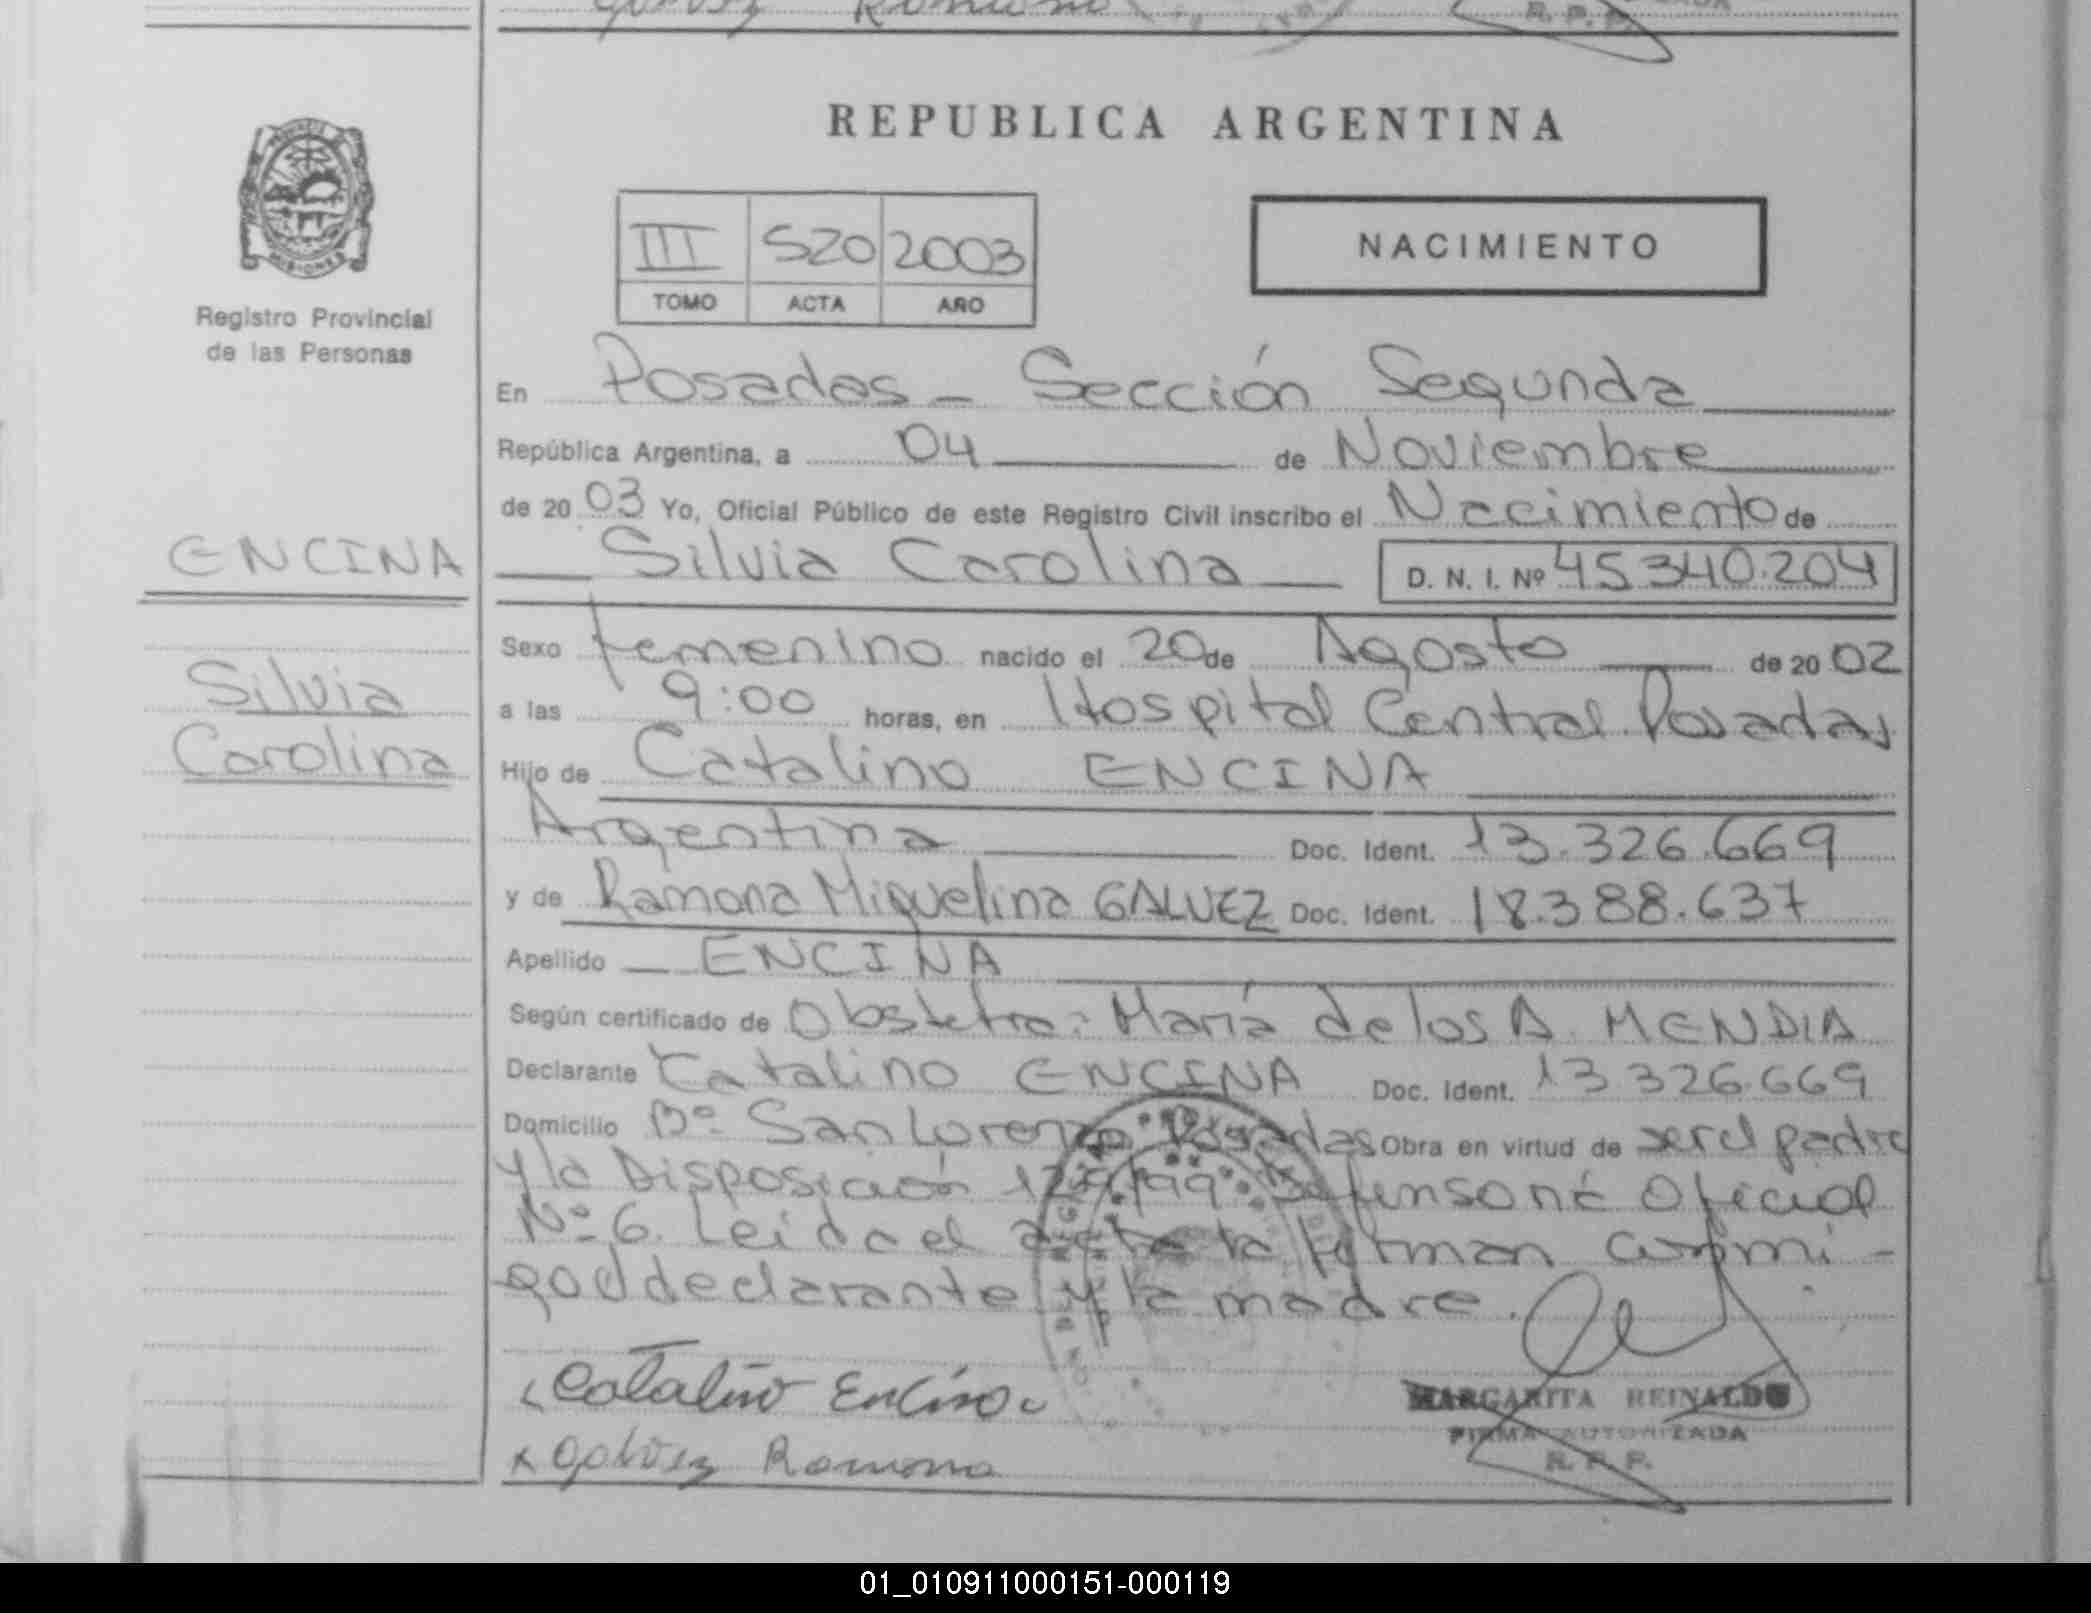 REPUBLICA ARGENTINA
MISIONES
Registro Provincial
de las Personas
III 520 2003
TOMO ACTA AÑO
NACIMIENTO
En Posadas - Sección Segunda
República Argentina, a 04 de Noviembre
de 20 03 Yo, Oficial Público de este Registro Civil inscribo el Nacimiento de
ENCINA
Silvia Carolina D. N. I. Nº 45340.204
Sexo femenino nacido el 20 de Agosto de 20 02
Silvia
a las 9:00 horas, en Hospital Central Posadas
Carolina
Hijo de Catalino ENCINA
Argentina Doc. Ident. 13.326.669
y de Ramona Miguelina GALVEZ Doc. Ident. 18.388.637
Apellido ENCINA
Según certificado de Obstetra: María de los A. MENDIA
Declarante Catalino ENCINA Doc. Ident. 13326.669
Domicilio Bº San Lorenzo Posadas Obra en virtud de ser el padre
y la Disposición /99 Oficial
Nº 6. Leida el acta la firman conmi-
go el declarante y la madre.
Catalino Encina
x Galvez Ramona
MARGARITA REINALDO
FIRMA AUTORIZADA
R. P. P.
01_010911000151-000119